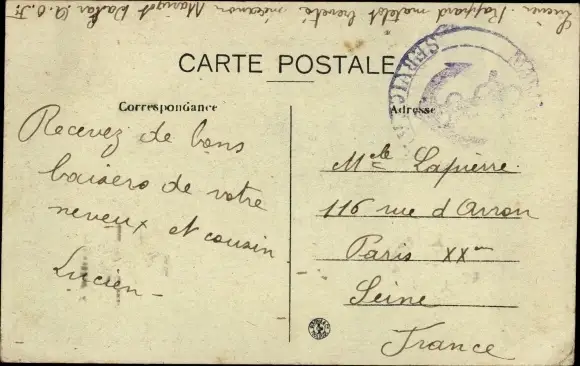 Lucien Rappard matelot breveté mécanicien Dakar A.O.F.
CARTE POSTALE
Correspondance
Adresse
Recevez de bons
baisers de votre
neveux et cousin
Lucien -
Melle Lapierre
116 rue d'Avron
Paris XXem
Seine
France
SERVICE